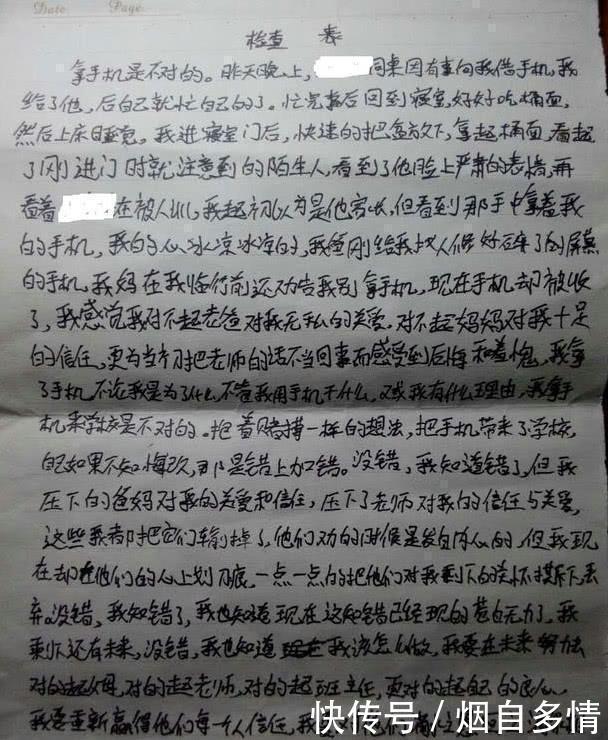 Date Page
检查 表
拿手机是不对的。昨天晚上, 同来因有事向我借手机,我
给了他,后自己就忙自己的了。忙完事后回到寝室,好好吃桶面,
然后上床睡觉。我进寝室门后,快速的把包放下,拿起桶面,看起
了刚进门时就注意到的陌生人,看到了他脸上严肃的表情,再
看着 在被人训,我起初以为是他家长,但看到那手中拿着我
的手机,我的心冰凉冰凉的,我爸刚给我找人修好碎了的屏幕
的手机,我妈在我临行前还劝告我别拿手机,现在手机却被收
了,我感觉我对不起老爸对我无私的关爱,对不起妈妈对我十足
的信任,更为当初把老师的话不当回事而感受到后悔和羞愧,我拿
了手机,不论我是为了什么,不管我用手机干什么,或我有什么理由,我拿手
机来学校是不对的。抱着赌博一样的想法,把手机带来了学校,
自己如果不知悔改,那是错上加错。没错,我知道错了,但我
压下的爸妈对我的关爱和信任,压下了老师对我的信任与关爱,
这些我都把它们输掉了,他们劝的时候是发自内心的,但我现
在却在他们的心上划刀痕,一点一点的把他们对我剩下的关怀撕下,丢
弃。没错,我知错了,我也知道现在这知错已经现的苍白无力了,我
剩下还有未来,没错,我也知道我该怎么做,我要在未来努力去
对的起父母,对的起老师,对的起班主任,更对的起自己的良心,
我要重新赢得他们每个人信任,我
快传号/烟自多情